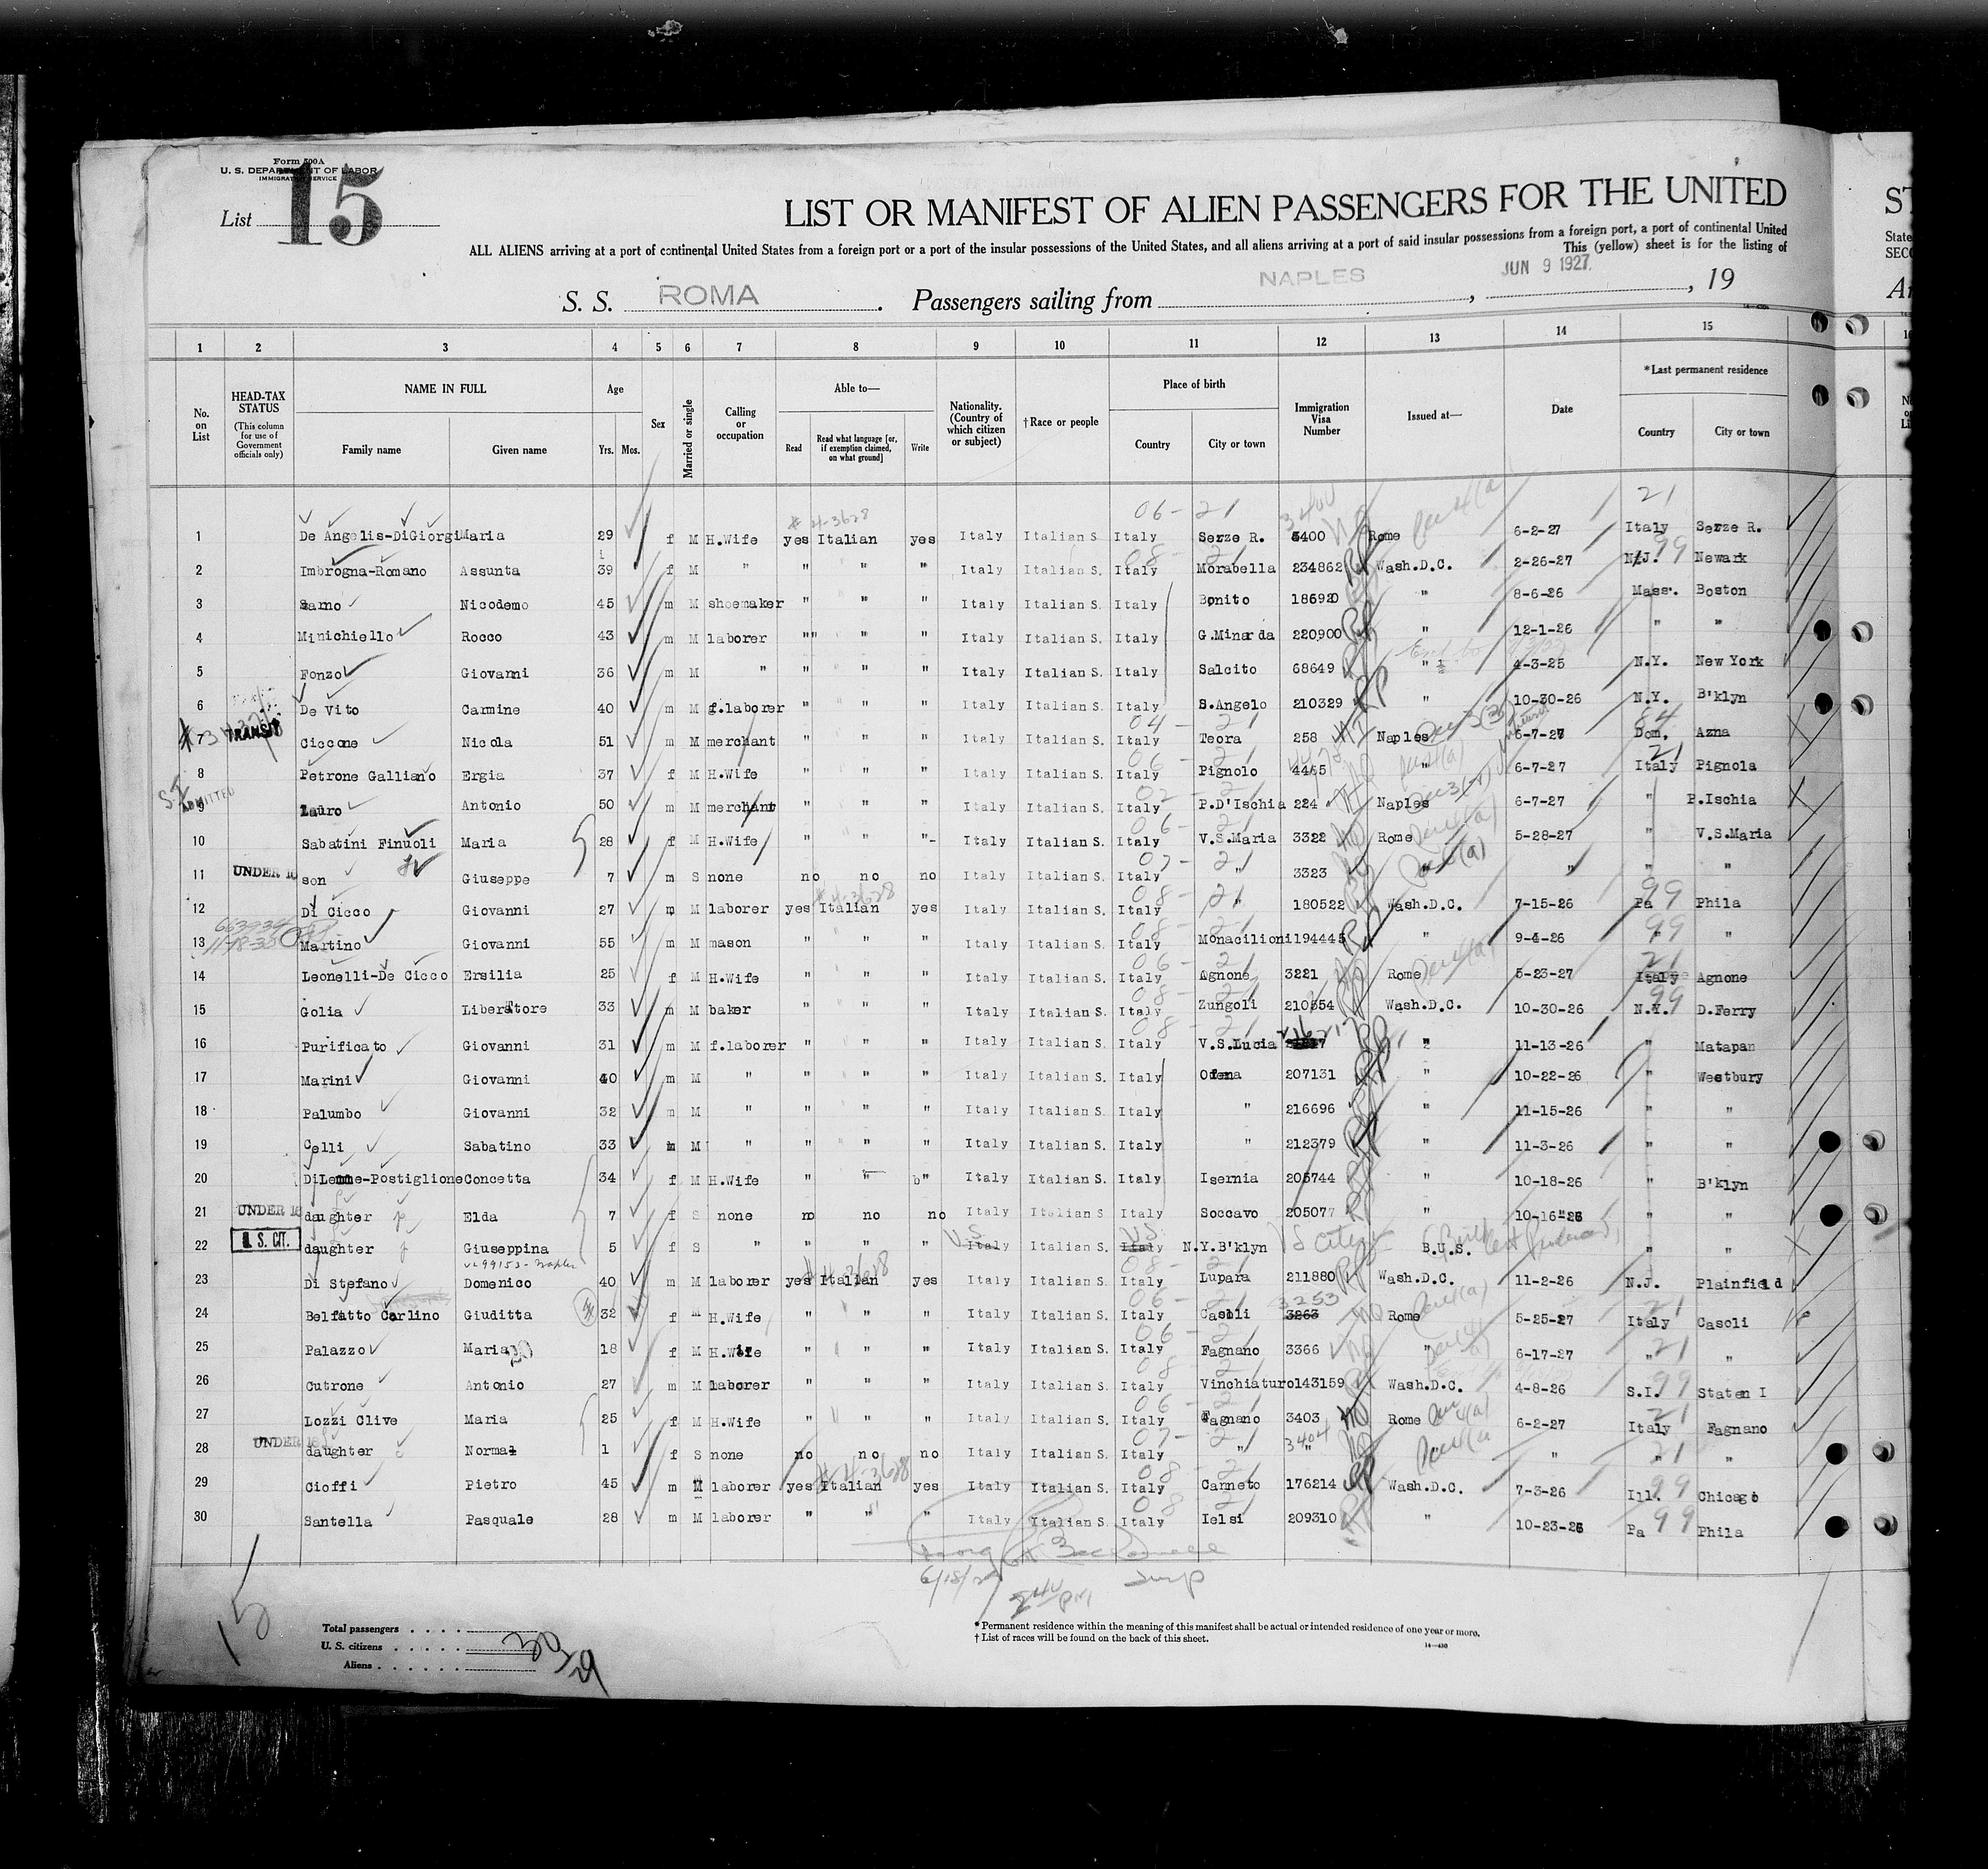 Form 500A
U. S. DEPARTMENT OF LABOR
IMMIGRATION SERVICE
List 15
LIST OR MANIFEST OF ALIEN PASSENGERS FOR THE UNITED
ST
ALL ALIENS arriving at a port of continental United States from a foreign port or a port of the insular possessions of the United States, and all aliens arriving at a port of said insular possessions from a foreign port, a port of continental United
State
This (yellow) sheet is for the listing of
SECO
S. S. ROMA. Passengers sailing from NAPLES, JUN 9 1927, 19
1 2 3 4 5 6 7 8 9 10 11 12 13 14 15
No. on List
HEAD-TAX STATUS (This column for use of Government officials only)
NAME IN FULL Family name Given name
Age Yrs. Mos.
Sex
Married or single
Calling or occupation
Able to— Read Read what language [or, if exemption claimed, on what ground] Write
Nationality. (Country of which citizen or subject)
†Race or people
Place of birth Country City or town
Immigration Visa Number
Issued at—
Date
*Last permanent residence Country City or town
1 De Angelis-DiGiorgi Maria 29 f M H.Wife yes Italian yes Italy Italian S. Italy Serze R. 3400 Rome 6-2-27 Italy Serze R.
2 Imbrogna-Romano Assunta 39 f M " " " " Italy Italian S. Italy Morabella 234862 Wash.D.C. 2-26-27 N.J. Newark
3 Sarno Nicodemo 45 m M shoemaker " " " Italy Italian S. Italy Bonito 186920 " 8-6-26 Mass. Boston
4 Minichiello Rocco 43 m M laborer "" " " Italy Italian S. Italy G.Minarda 220900 " 12-1-26 " "
5 Fonzo Giovanni 36 m M " " " " Italy Italian S. Italy Salcito 68649 " 4-3-25 N.Y. New York
6 De Vito Carmine 40 m M f.laborer " " " Italy Italian S. Italy S.Angelo 210329 " 10-30-26 N.Y. B'klyn
7 TRANSIT Ciccone Nicola 51 m M merchant " " " Italy Italian S. Italy Teora 258 Naples 6-7-27 Dom. Azna
8 Petrone Galliano Ergia 37 f M H.Wife " " " Italy Italian S. Italy Pignolo 4465 " 6-7-27 Italy Pignola
ADMITTED
9 Lauro Antonio 50 m M merchant " " " Italy Italian S. Italy P.D'Ischia 224 Naples 6-7-27 " P.Ischia
10 Sabatini Finuoli Maria 28 f M H.Wife " " "- Italy Italian S. Italy V.S.Maria 3322 Rome 5-28-27 " V.S.Maria
11 UNDER 16 son Giuseppe 7 m S none no no no Italy Italian S. Italy " 3323 " " " "
12 Di Cicco Giovanni 27 m M laborer yes Italian yes Italy Italian S. Italy " 180522 Wash.D.C. 7-15-26 Pa Phila
13 Martino Giovanni 55 m M mason " " " Italy Italian S. Italy Monacilioni 194445 " 9-4-26 " "
14 Leonelli-De Cicco Ersilia 25 f M H.Wife " " " Italy Italian S. Italy Agnone 3221 Rome 5-23-27 Italy Agnone
15 Golia Liberatore 33 m M baker " " " Italy Italian S. Italy Zungoli 210554 Wash.D.C. 10-30-26 N.Y. D.Ferry
16 Purificato Giovanni 31 m M f.laborer " " " Italy Italian S. Italy V.S.Lucia 216217 " 11-13-26 " Matapan
17 Marini Giovanni 40 m M " " " " Italy Italian S. Italy Ofena 207131 " 10-22-26 " Westbury
18 Palumbo Giovanni 32 m M " " " " Italy Italian S. Italy " 216696 " 11-15-26 " "
19 Celli Sabatino 33 m M " " " " Italy Italian S. Italy " 212379 " 11-3-26 " "
20 DiLemme-Postiglione Concetta 34 f M H.Wife " " " Italy Italian S. Italy Isernia 205744 " 10-18-26 " B'klyn
21 UNDER 16 daughter Elda 7 f S none no no no Italy Italian S. Italy Soccavo 205077 " 10-16-26 " "
22 U. S. CIT. daughter Giuseppina 5 f S " " " " U.S. Italy Italian S. U.S. Italy N.Y.B'klyn US citizen B.U.S. " "
23 Di Stefano Domenico 40 m M laborer yes Italian yes Italy Italian S. Italy Lupara 211880 Wash.D.C. 11-2-26 N.J. Plainfield
24 Belfatto Carlino Giuditta 32 f M H.Wife " " " Italy Italian S. Italy Casoli 3253 3263 Rome 5-25-27 Italy Casoli
25 Palazzo Maria 18 f M H.Wife " " " Italy Italian S. Italy Fagnano 3366 " 6-17-27 " "
26 Cutrone Antonio 27 m M laborer " " " Italy Italian S. Italy Vinchiaturo 143159 Wash.D.C. 4-8-26 S.I. Staten I
27 Lozzi Clive Maria 25 f M H.Wife " " " Italy Italian S. Italy Fagnano 3403 Rome 6-2-27 Italy Fagnano
28 UNDER 16 daughter Norma 1 f S none no no no Italy Italian S. Italy " 3404 " " " "
29 Cioffi Pietro 45 m M laborer yes Italian yes Italy Italian S. Italy Canneto 176214 Wash.D.C. 7-3-26 Ill. Chicago
30 Santella Pasquale 28 m M laborer " " " Italy Italian S. Italy Ielsi 209310 " 10-23-26 Pa Phila
6/18/27
15
Total passengers
U. S. citizens
Aliens
30
29
* Permanent residence within the meaning of this manifest shall be actual or intended residence of one year or more.
† List of races will be found on the back of this sheet.
14—430